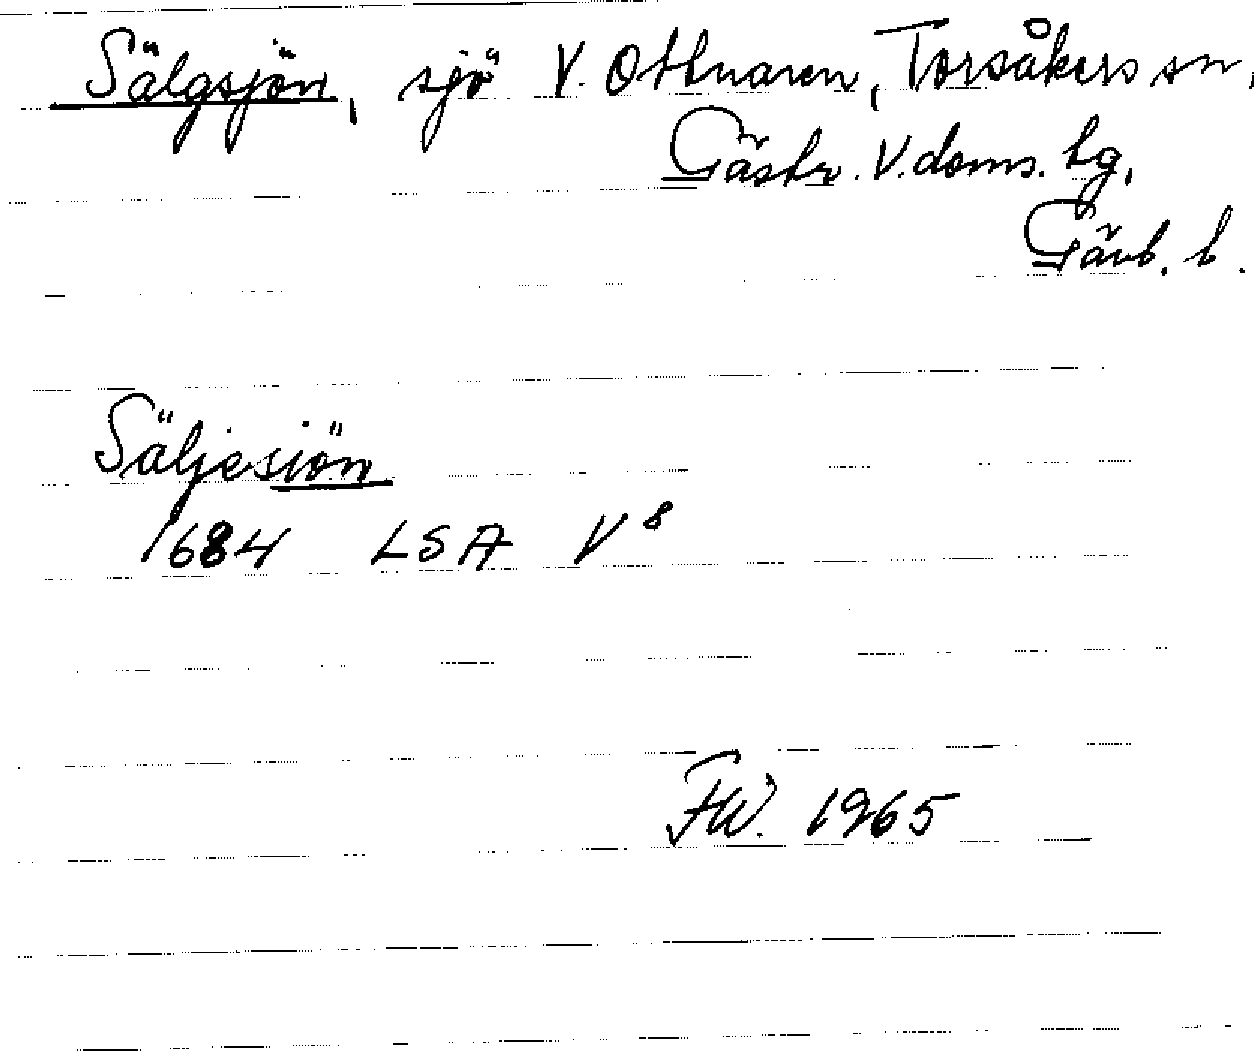 Sälgsjön, sjö V. Ottnaren, Torsåkers sn,
Gästr. V. doms. tg,
Gävb. l.
Säljesiön
1684 LSA V⁸
FW. 1965